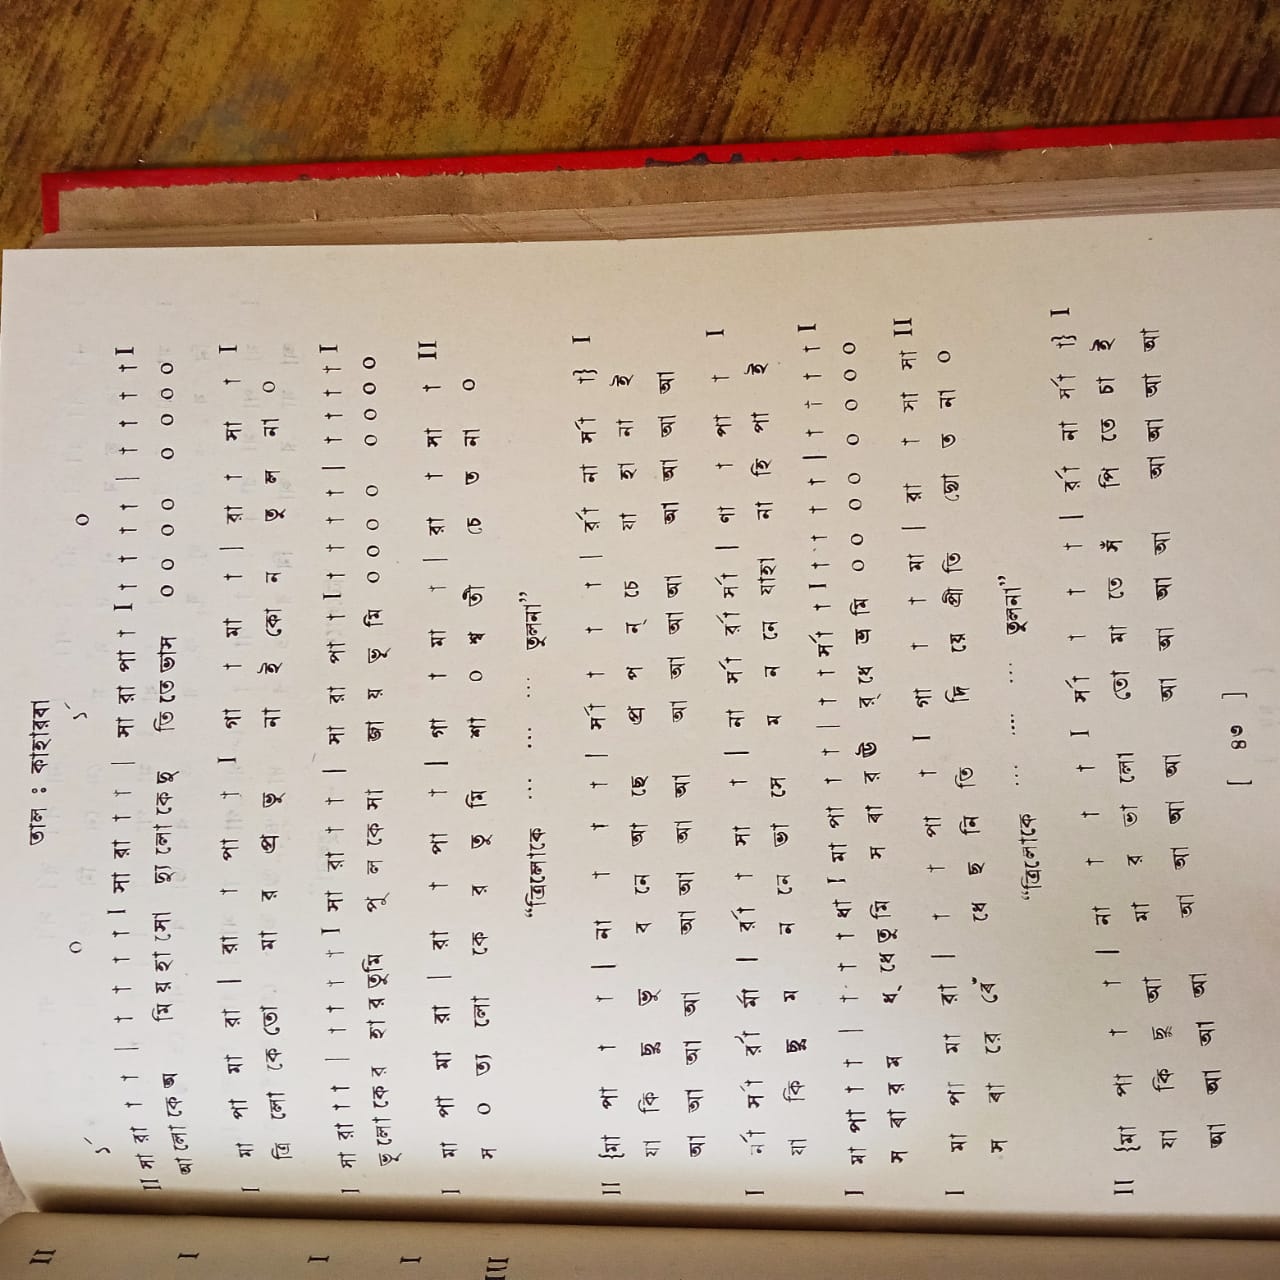 তাল : কাহারবা
১´ ০ ১´ ০
II সা রা † † | † † † † I সা রা † † | সা রা পা † I † † † † | † † † † I
আ লো কে অ মি য় হা সো দ্যু লো কে ছু তি তে ভাস ০ ০ ০ ০ ০ ০ ০ ০
I মা পা মা রা | রা † পা † I গা † মা † | রা † সা † I
ত্রি লো কে তো মা র প্র ভু না ই কো ন তু ল না ০
I সা রা † † | † † † † I সা রা † † | সা রা পা † I † † † † | † † † † I
ভূ লো কে র হা র তুমি পূ ল কে সা জা য় ভূ মি ০ ০ ০ ০ ০ ০ ০ ০
I মা পা মা রা | রা † পা † | গা † মা † | রা † সা † II
স ০ ত্য লো কে র তু মি শা ০ শ্ব তী চে ত না ০
“ত্রিলোকে ... ... ... তুলনা”
II {মা পা † † | না † † † | র্সা † † † | র্রা না র্সা †} I
যা কি ছু ভু ব নে আ ছে প্র প ন্ চে যা হা না ই
আ আ আ আ আ আ আ আ আ আ আ আ আ আ আ আ
I র্না র্সা র্রা র্মা | র্রা † সা † | না র্সা র্রা র্সা | ণা † পা † I
যা কি ছু ম ন নে ভা সে ম ন নে যাহা না হি পা ই
I মা পা † † | † † † ধা I মা পা † † | † † র্সা † I † † † † | † † † † I
স বা র ম ধ্ ধে তুমি স বা র ঊ র্ ধে ভ্রমি ০ ০ ০ ০ ০ ০ ০ ০
I মা পা মা রা | † † পা † I গা † † মা | রা † সা সা II
স বা রে বেঁ ধে ছ নি তি দি য়ে প্রী তি ছো ত না ০
“ত্রিলোকে ... .... ... তুলনা”
II {মা পা † † | না † † † I র্সা † † † | র্রা না র্সা †} I
যা কি ছু আ মা র ভা লো তো মা তে সঁ পি তে চা ই
আ আ আ আ আ আ আ আ আ আ আ আ আ আ আ আ
[ ৪৩ ]
II
I
I
I
III